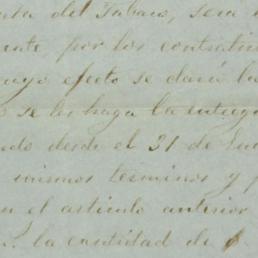 del Tabaco, sera
por los contratis
cuyo efecto se dará la
se les haga la entreg
do desde el 31 de
mismos terminos y
el articulo anterior
la cantidad de $